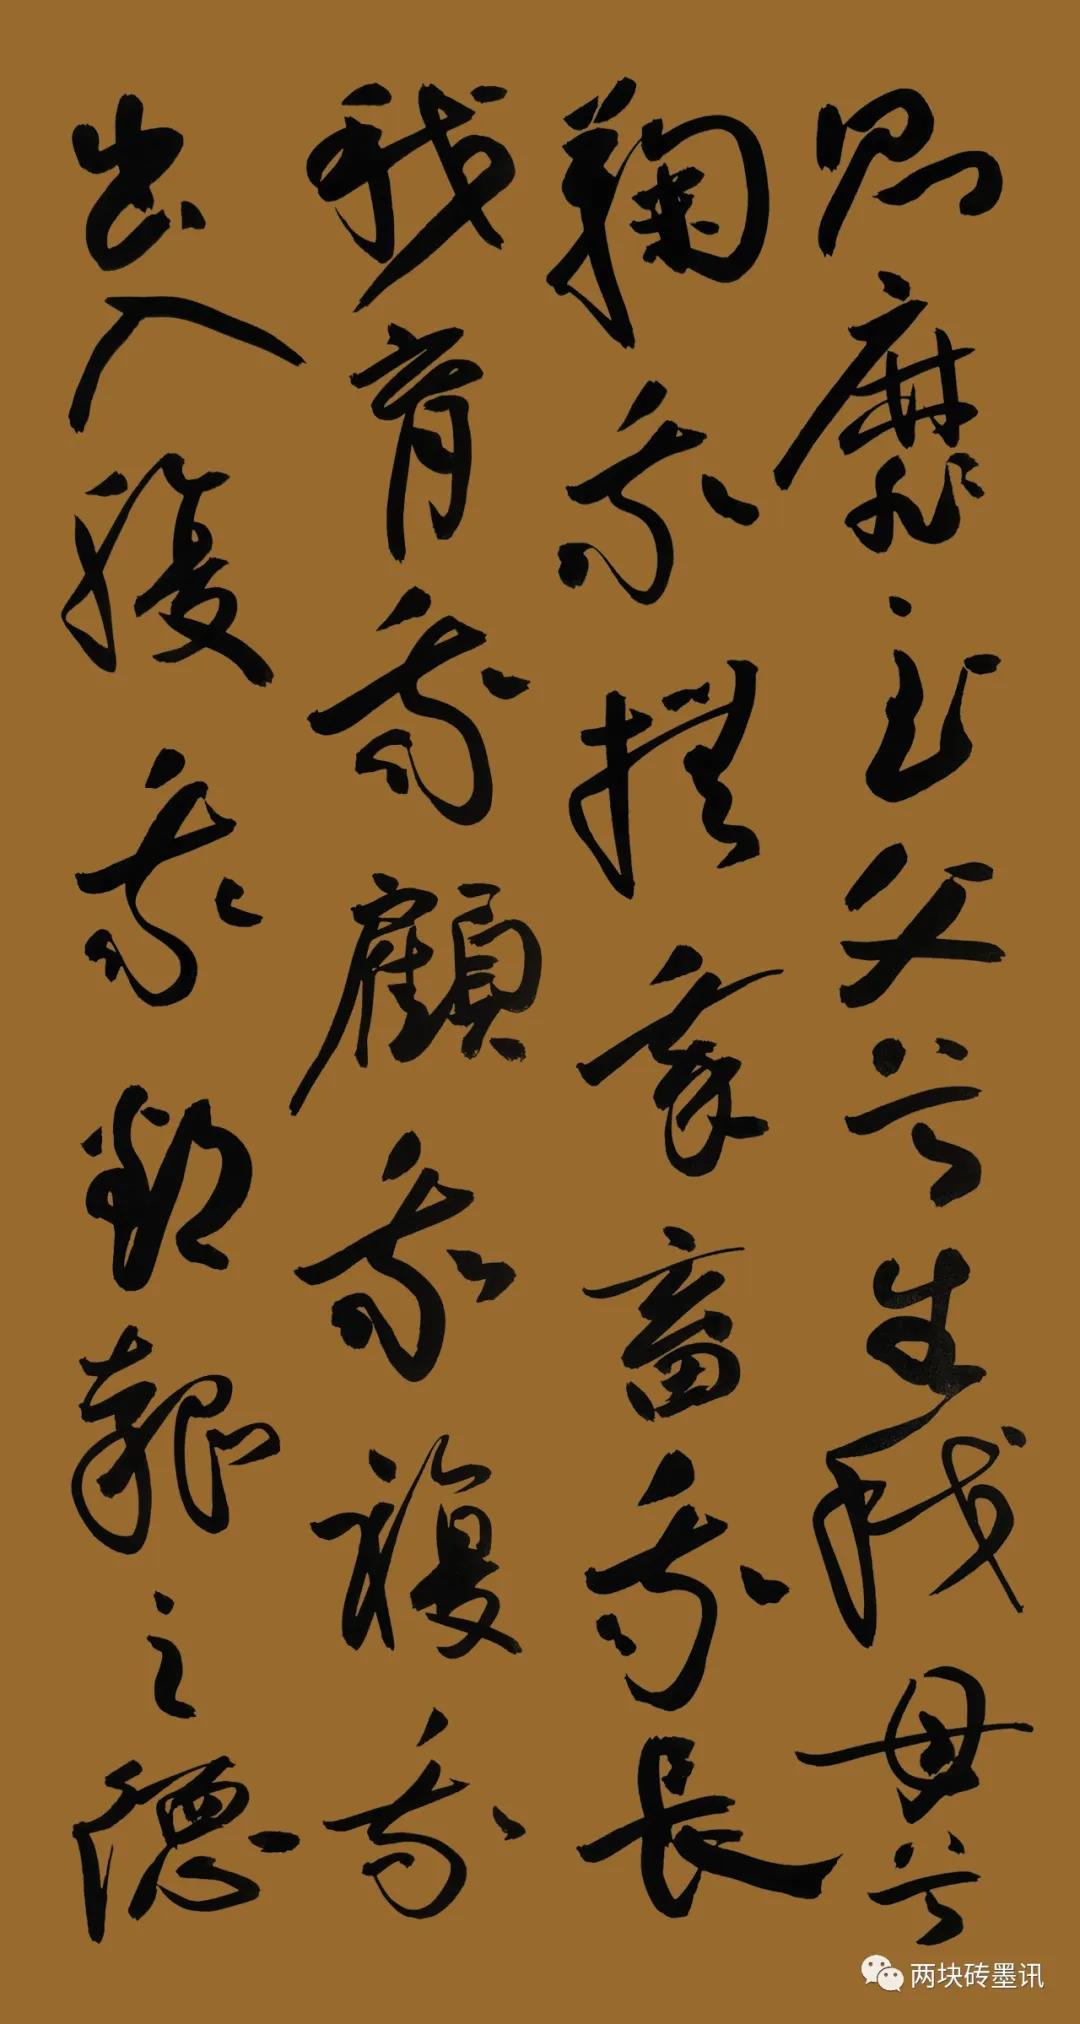 則靡至父兮生我母兮
鞠我撫我畜我長
我育我顧我複我
出入腹我欲報之德
两块砖墨讯